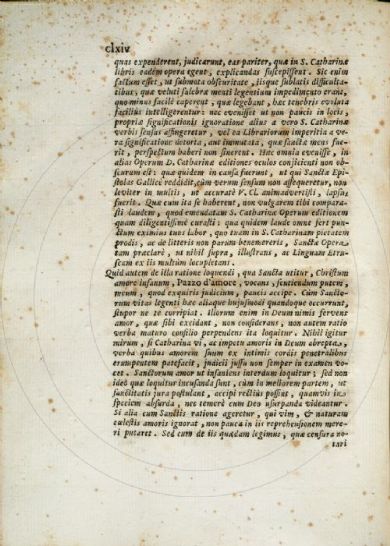 clxiv
quas expenderent, judicarunt, eas pariter, quæ in S. Catharinæ
libris eadem opera egent, explicandas suscepissent. Sic enim
factum esset, ut submota obscuritate, iisque sublatis difficulta-
tibus, quæ veluti salebræ menti legentium impedimento erant,
quominus facile caperent, quæ legebant, hæc tenebris evoluta
facilius intelligerentur: nec evenisset ut non paucis in locis,
propria significationis ignoratione alius a vero S. Catharinæ
verbis sensus affingeretur, vel ea Librariorum imperitia a ve-
ra significatione detorta, aut immutata, quæ sancta mens fue-
rit, perspectum haberi non sineret. Hæc omnia evenisse, in
alias Operum D. Catharinæ editiones oculos conjicienti non ob-
scurum est: quæ quidem in causa fuerunt, ut qui Sanctæ Epi-
stolas Gallice reddidit, cum verum sensum non assequeretur, non
leviter in multis, ut accuratè P. Cl. animadvertisti, lapsus
fuerit. Quæ cum ita se haberent, non vulgarem tibi comparа-
sti laudem, quod emendatam S. Catharinæ Operum editionem
quam diligentissimè curasti: qua quidem laude omne fert pun-
ctum eximius tuus labor, quo tuam in S. Catharinam pietatem
prodis, ac de litteris non parum benemereris, Sanctæ Opera
tam præclarè, ut nihil supra, illustrans, ac Linguam Etru-
scam ex iis multùm locupletans.
Quid autem de illa ratione loquendi, qua Sancta utitur, Christum
amore insanum, Pazzo d'amore, vocans, sentiendum putem;
mirum, quod exquiris judicium, paucis accipe. Cùm Sancto-
rum vitas legenti hæc aliaque hujusmodi quandoque occurrunt,
stupor ne te corripiat. Illorum enim in Deum nimis fervens
amor, quæ sibi excidant, non considerans, non autem ratio
verba maturo consilio perpendens ita loquitur. Nihil igitur
mirum, si Catharina vi, ac impetu amoris in Deum abrepta,
verba quibus amorem suum ex intimis cordis penetralibus
erumpentem patefacit, judicii jussu non semper in examen vo-
cet. Sanctorum amor ut insaniens interdum loquitur; sed non
ideo quæ loquitur incusanda sunt, cùm in meliorem partem, ut
sanctitatis jura postulant, accipi rectius possint, quamvis in
speciem absurda, nec temerè cum Deo usurpanda videantur.
Si alia cum Sanctis ratione ageretur, qui vim, & naturam
cælestis amoris ignorat, non pauca in iis reprehensionem mere-
ri putaret. Sed cum de iis quædam legimus, quæ censura no-
tari